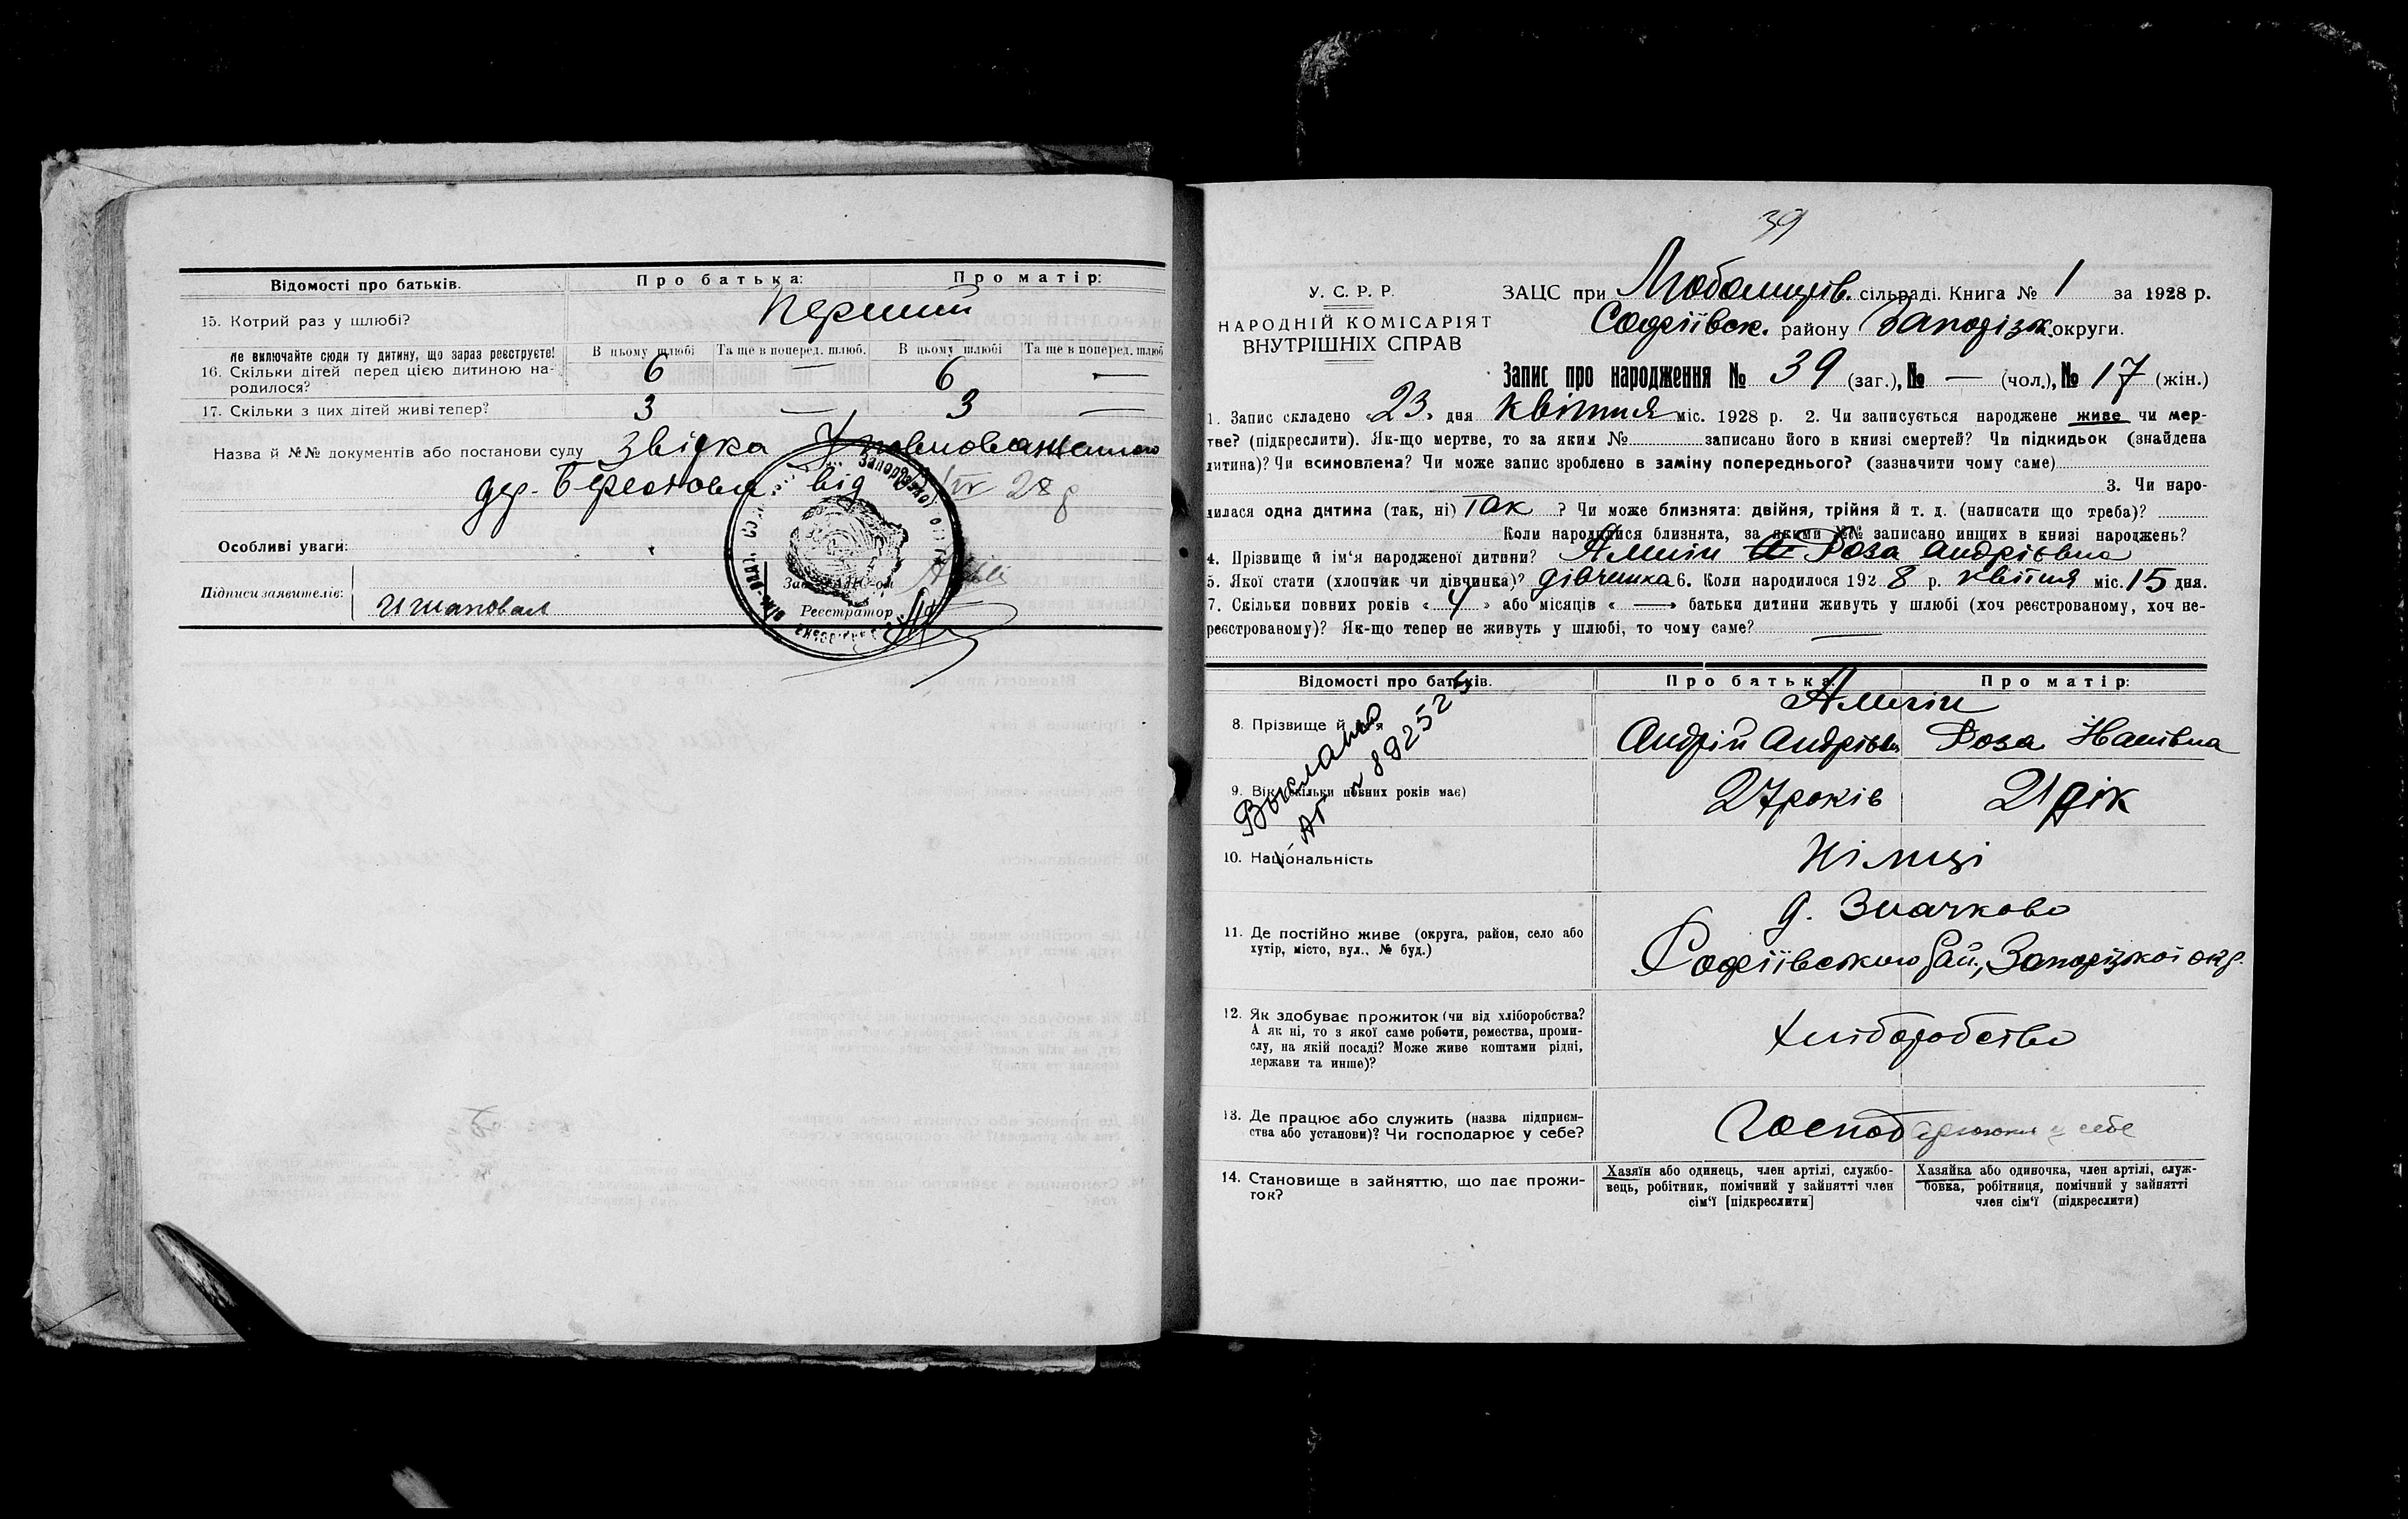 Відомості про батьків.
Про батька:
Про матір:
15. Котрий раз у шлюбі?
Перший
Не включайте сюди ту дитину, що зараз реєструєте!
В цьому шлюбі
Та ще в поперед. шлюб.
В цьому шлюбі
Та ще в поперед. шлюб
16. Скільки дітей перед цією дитиною на-
родилося?
6 — 6 —
17. Скільки з цих дітей живі тепер?
3 — 3 —
Назва й №№ документів або постанови суду звідка Уповноваженого
дер. Берестовка від IV 28 р
Особливі уваги:
Підписи заявителів:
Зав. ЗАГС-ом
Реєстратор
39
У. С. Р. Р.
НАРОДНІЙ КОМІСАРІЯТ
ВНУТРІШНІХ СПРАВ
ЗАЦС при сільраді. Книга № 1 за 1928 р.
Софіївск. району Запорізк. округи.
Запис про народження № 39 (заг.), № — (чол.), № 17 (жін.)
1. Запис складено «23» дня квітня міс. 1928 р. 2. Чи записується народжене живе чи мер-
тве? (підкреслити). Як-що мертве, то за яким № записано його в книзі смертей? Чи підкидьок (знайдена
дитина)? Чи всиновлена? Чи може запис зроблено в заміну попереднього? (зазначити чому саме)
3. Чи наро-
дилася одна дитина (так, ні) так ? Чи може близнята: двійня, трійня й т. д. (написати що треба)?
Коли народилися близнята, за якими №№ записано инших в книзі народжень?
4. Прізвище й ім'я народженої дитини? Роза Андріївна
5. Якої стати (хлопчик чи дівчинка)? дівчинка 6. Коли народилося 1928 р. квітня міс. 15 дня.
7. Скільки повних років «4» або місяців «—» батьки дитини живуть у шлюбі (хоч реєстрованому, хоч не-
реєстрованому)? Як-що тепер не живуть у шлюбі, то чому саме? —
Відомості про батьків.
Про батька:
Про матір:
8. Прізвище й ім'я
Андрій Андріїв
Роза
Выслано
9. Вік (скільки повних років має)
27 років
21 рік
10. Національність
Німці
11. Де постійно живе (округа, район, село або
хутір, місто, вул., № буд.)
д. Значково
Софіївського рай., Запорізької окр.
12. Як здобуває прожиток (чи від хліборобства?
А як ні, то з якої саме роботи, ремества, проми-
слу, на якій посаді? Може живе коштами рідні,
держави та инше)?
хліборобство
13. Де працює або служить (назва підприєм-
ства або установи)? Чи господарює у себе?
Господарюють у себе
14. Становище в зайняттю, що дає прожи-
ток?
Хазяїн або одинець, член артілі, службо-
вець, робітник, помічний у зайнятті член
сім'ї [підкреслити]
Хазяйка або одиночка, член артілі, служ-
бовка, робітниця, помічний у зайнятті
член сім'ї (підкреслити)